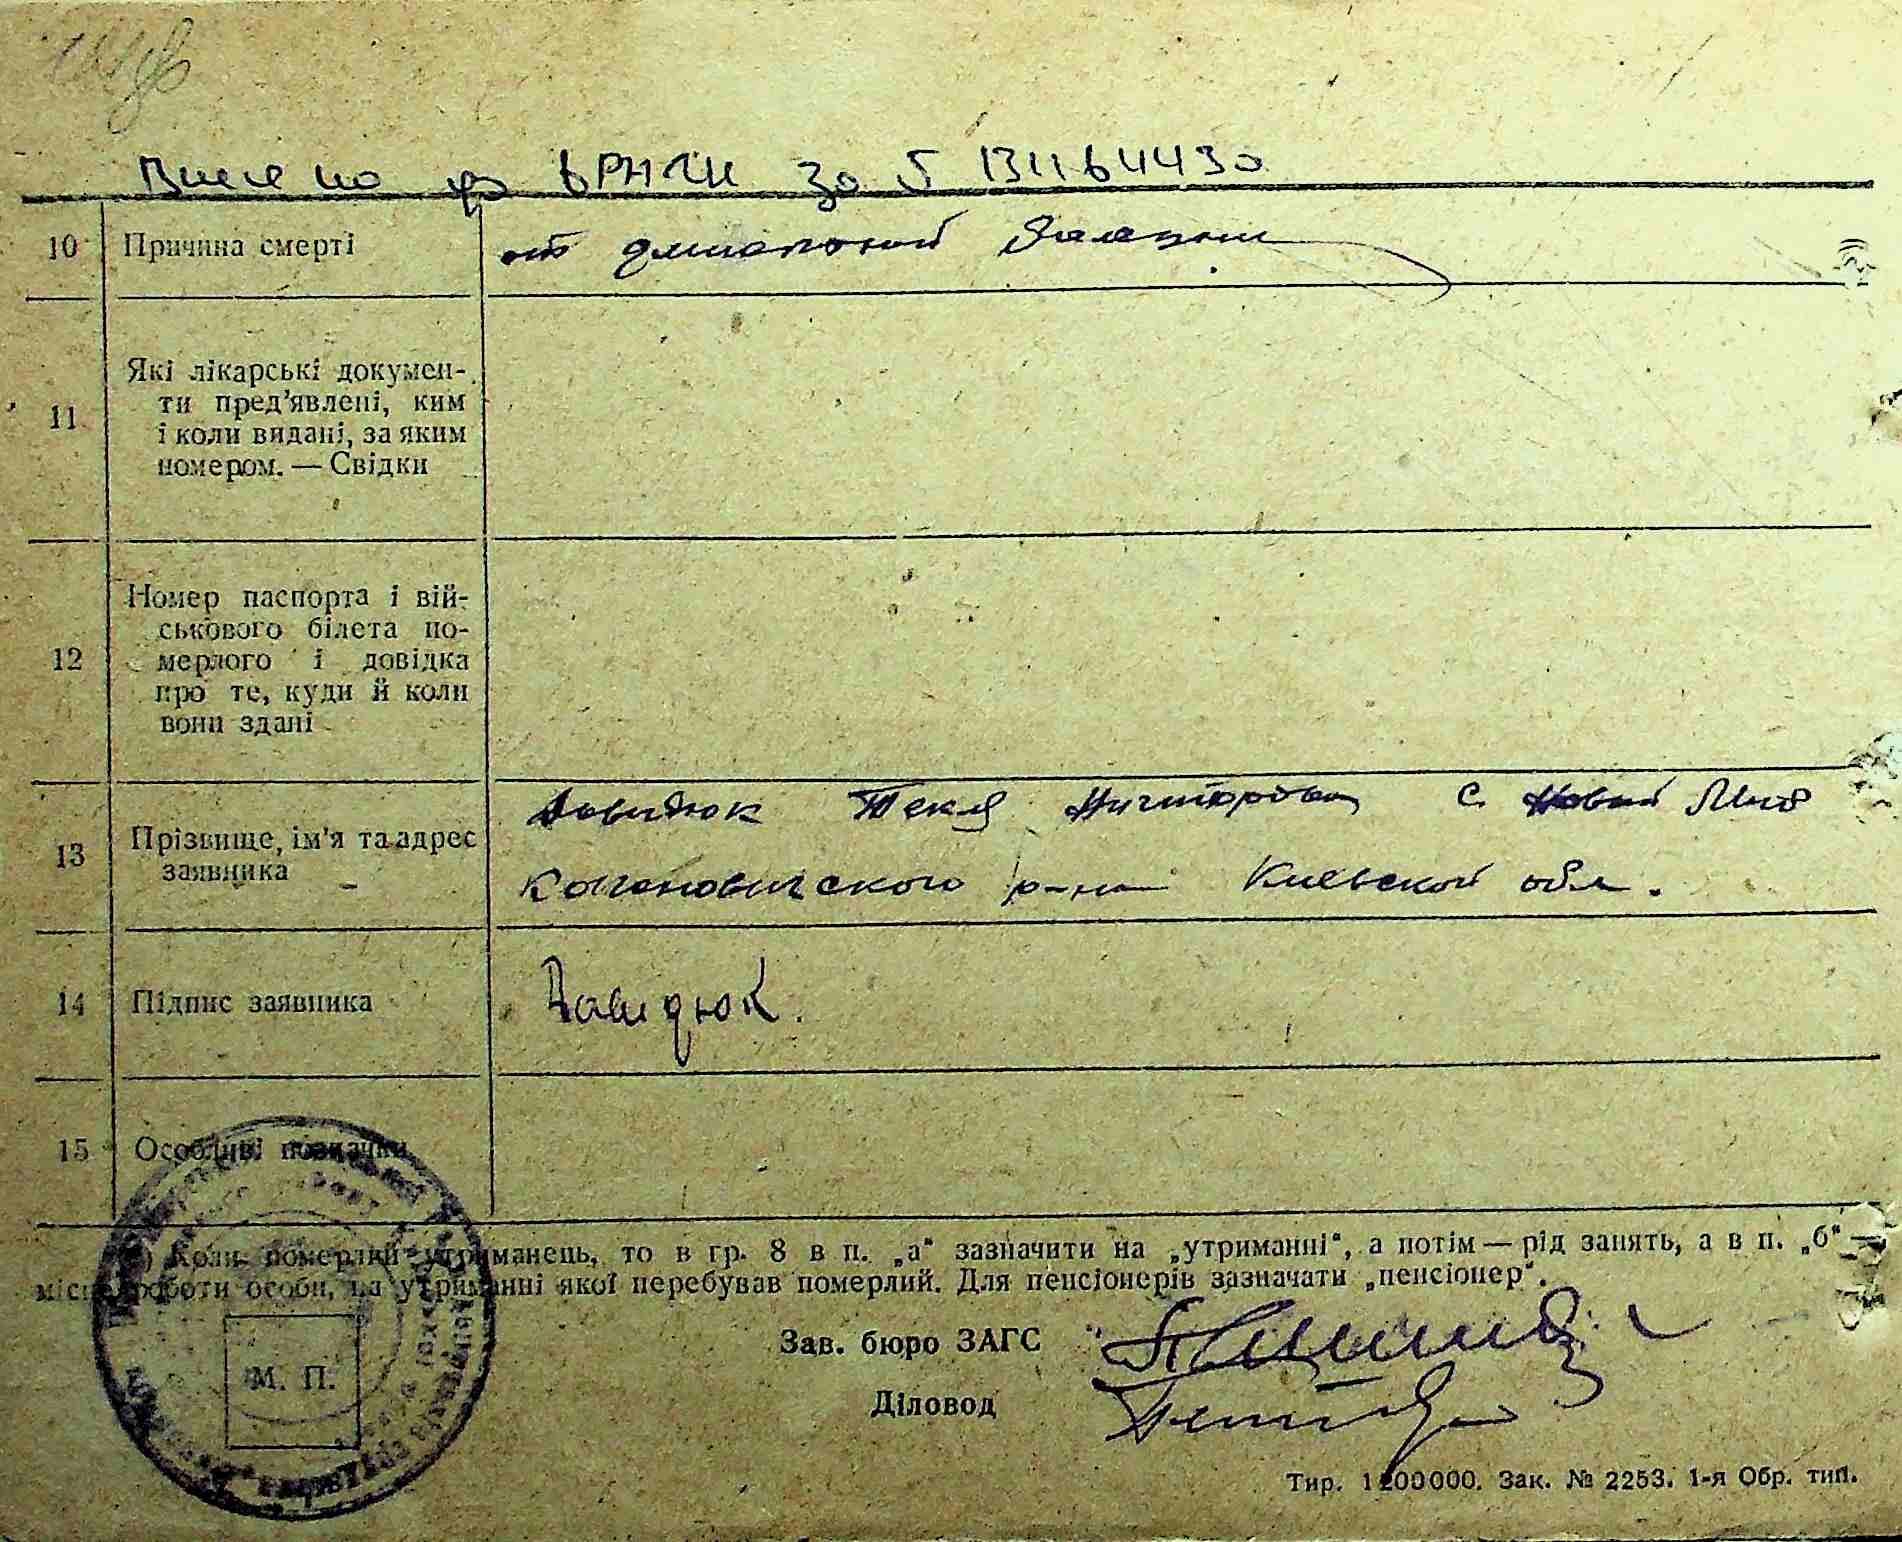 Внесено до ДРАЦСГ за № 13116443 0
10 Причина смерти от
11 Які лікарські докумен-
ти пред'явлені, ким
і коли видані, за яким
номером. — Свідки
12 Номер паспорта і вій-
ськового білета по-
мерлого і довідка
про те, куди й коли
вони здані
13 Прізвище, ім'я та адрес
заявника
Давидюк Текля с. Новый Мир
Кагановичского р-на Киевской обл.
14 Підпис заявника Давидюк.
15 Особливі позначки
) Коли померлий утриманець, то в гр. 8 в п. „а“ зазначити на „утриманні“, а потім — рід занять, а в п. „б“ —
місце роботи особи, на утриманні якої перебував померлий. Для пенсіонерів зазначати „пенсіонер“.
Зав. бюро ЗАГС
Діловод
М. П.
Тир. 1200000. Зак. № 2253. 1-я Обр. тип.